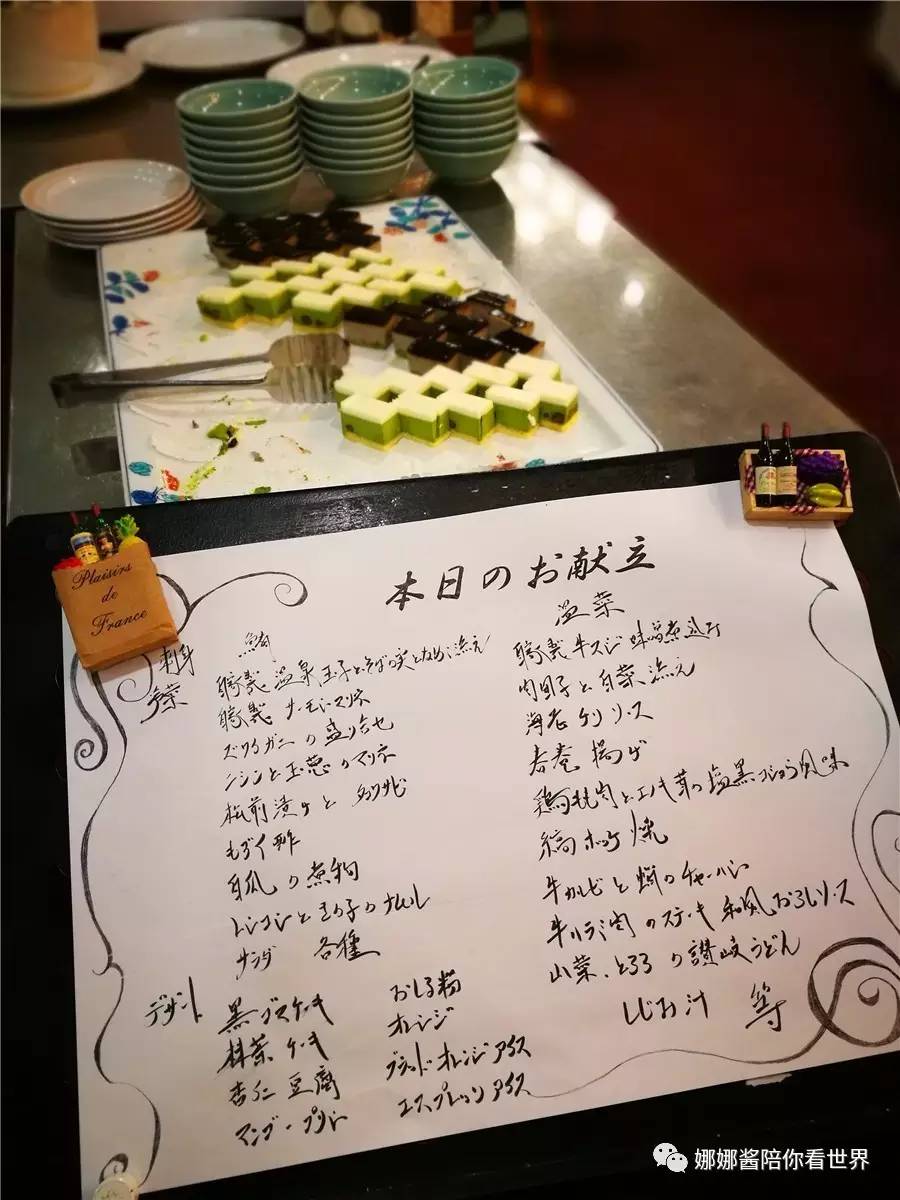 Plaisirs
de
France
本日のお献立
刺身 鮪
冷菜
燻製 温泉玉子とそばの実となめこ添え
燻製 サーモンマリネ
ズワイガニの盛り合せ
ニシンと玉葱のマリネ
松前漬けと
もずく酢
白瓜の煮物
レンコンときのこのナムル
サラダ 各種
温菜
燻製牛スジ味噌煮込み
肉団子と白菜添え
海老チリソース
春巻揚げ
鶏もも肉とエノキ茸の塩黒コショウ風味
縞ホッケ焼
牛カルビと のチャーハン
牛ハラミ肉のステーキ和風おろしソース
山菜、とろろの讃岐うどん
しじみ汁 等
デザート
黒 ケーキ
抹茶ケーキ
杏仁豆腐
マンゴープリン
おしる粉
オレンジ
ブラッドオレンジアイス
エスプレッソアイス
娜娜酱陪你看世界